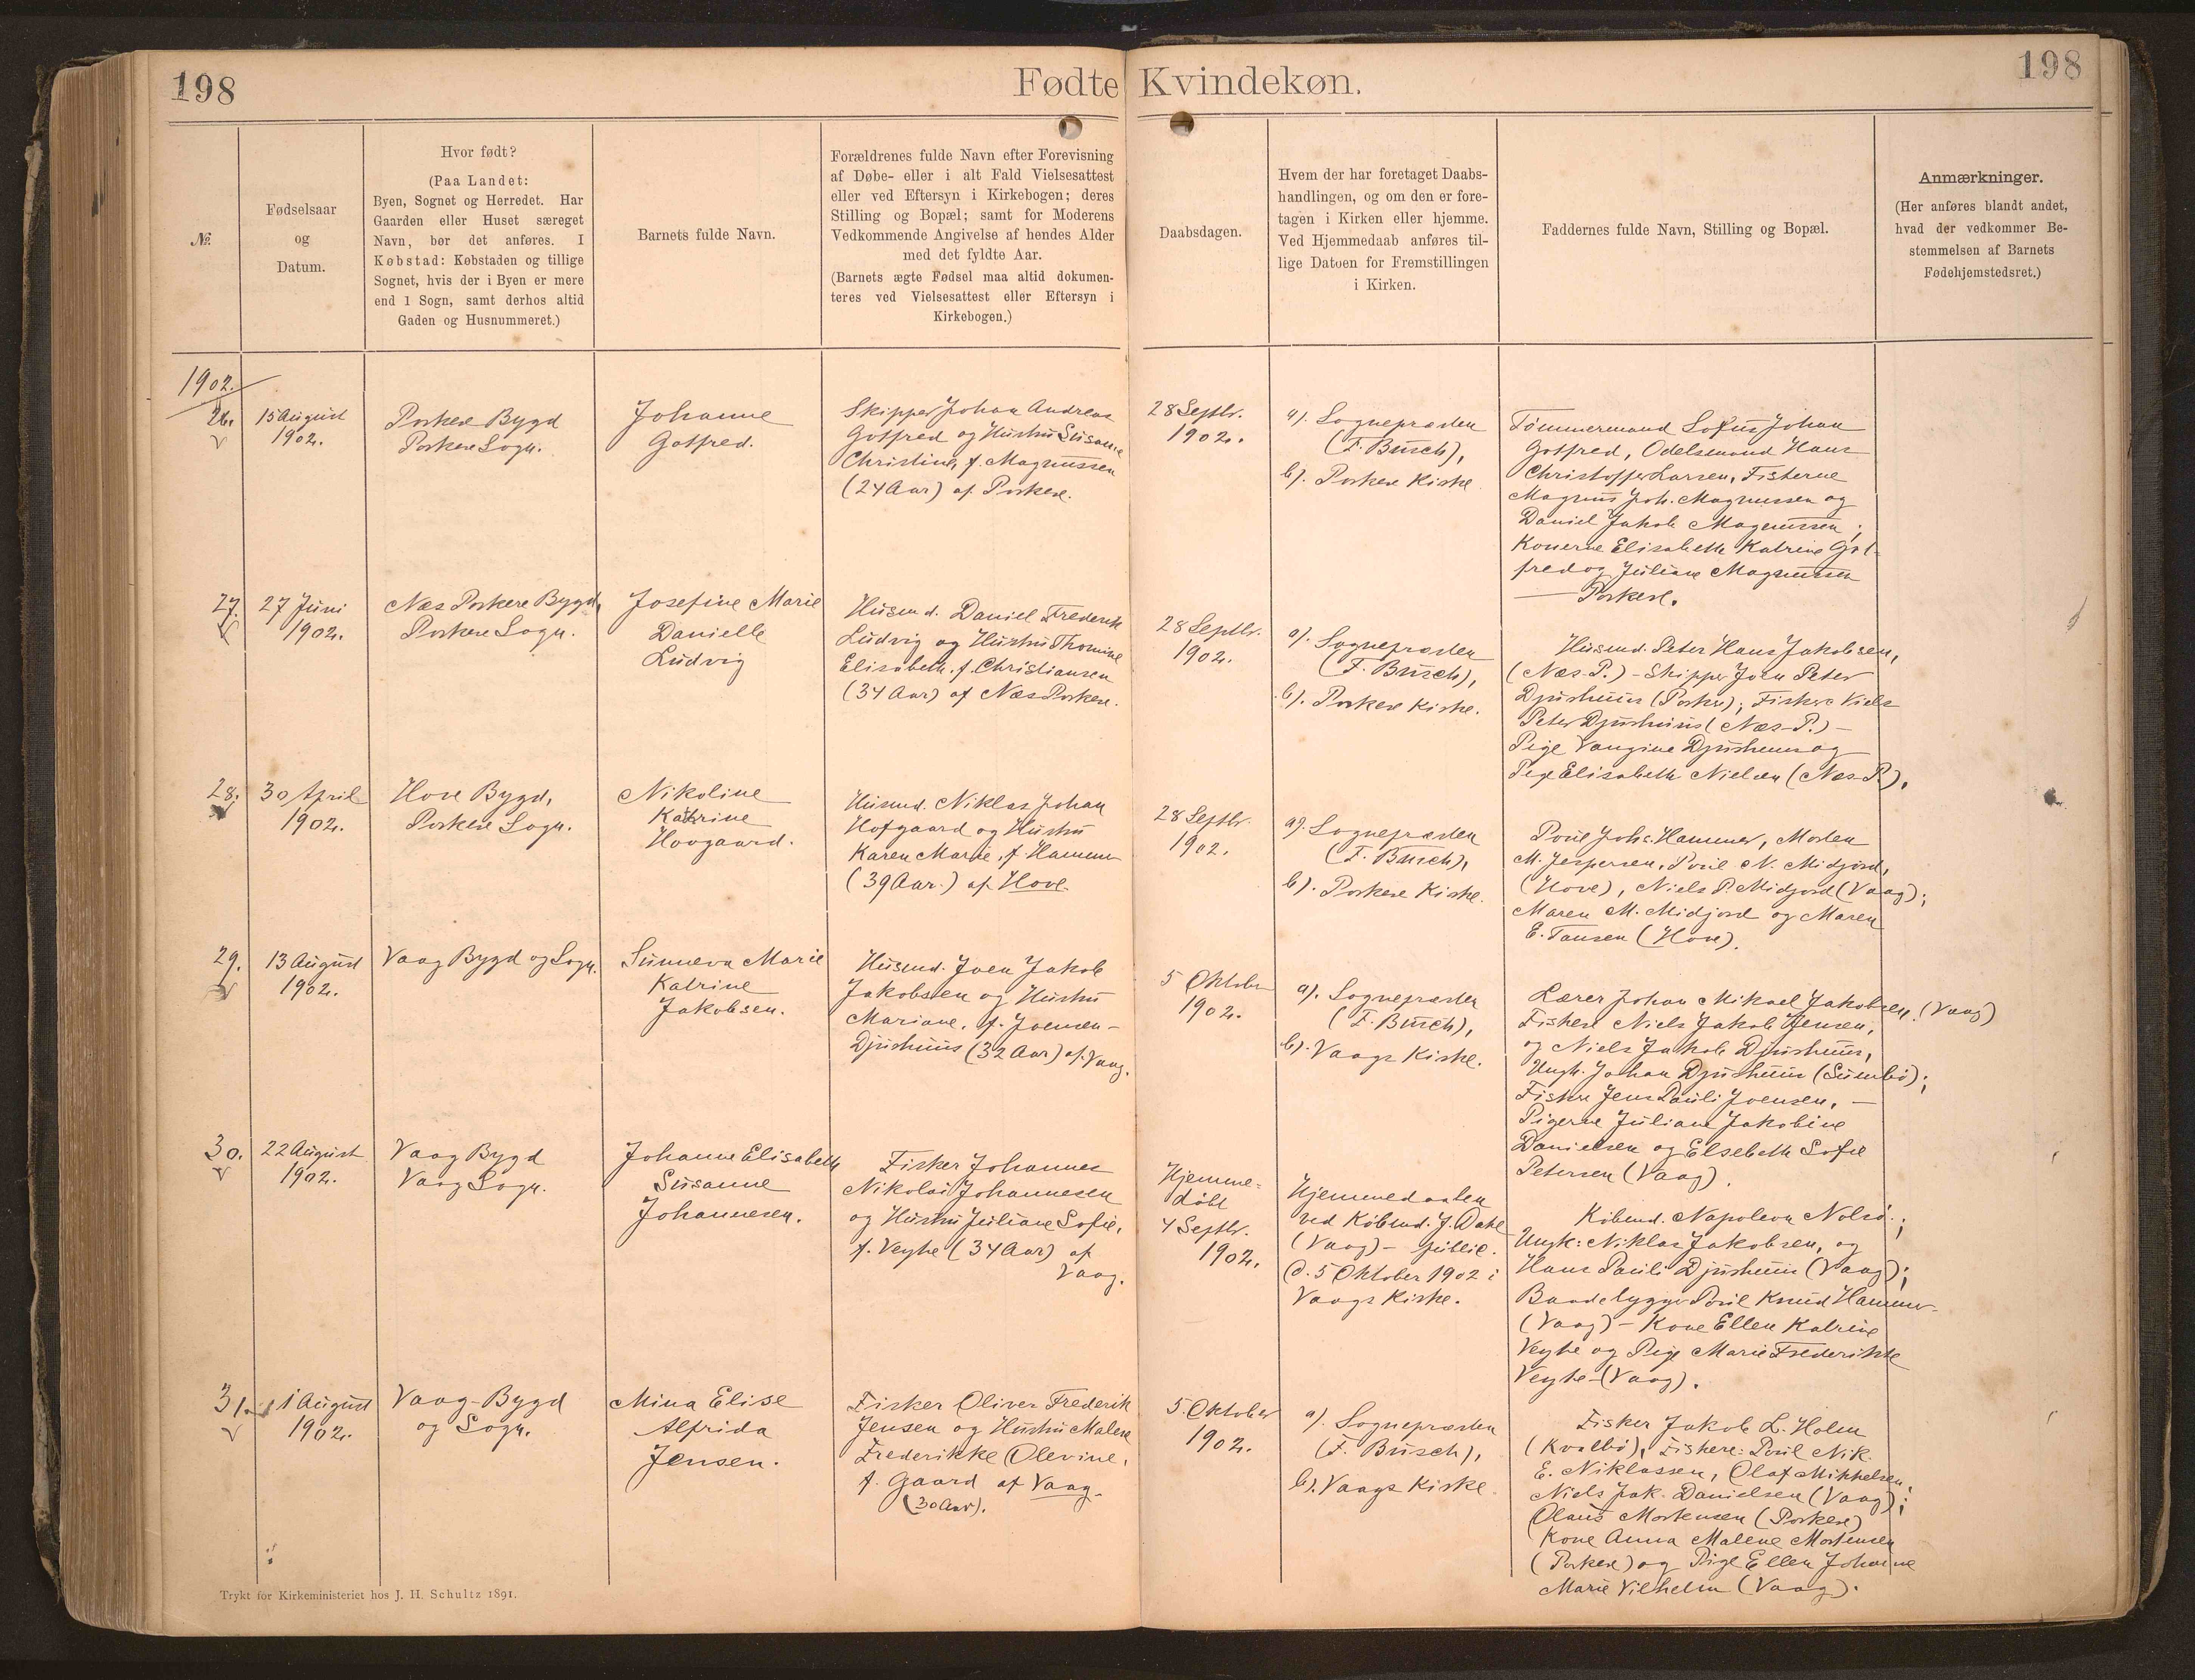 198
Fødte Kvindekøn.
198
№.
Fødselsaar
og
Datum.
Hvor født?
(Paa Landet:
Byen, Sognet og Herredet. Har
Gaarden eller Huset særeget
Navn, bør det anføres. I
Købstad: Købstaden og tillige
Sognet, hvis der i Byen er mere
end 1 Sogn, samt derhos altid
Gaden og Husnummeret.)
Barnets fulde Navn.
Forældrenes fulde Navn efter Forevisning
af Døbe- eller i alt Fald Vielsesattest
eller ved Eftersyn i Kirkebogen; deres
Stilling og Bopæl; samt for Moderens
Vedkommende Angivelse af hendes Alder
med det fyldte Aar.
(Barnets ægte Fødsel maa altid dokumen-
teres ved Vielsesattest eller Eftersyn i
Kirkebogen.)
Daabsdagen.
Hvem der har foretaget Daabs-
handlingen, og om den er fore-
tagen i Kirken eller hjemme.
Ved Hjemmedaab anføres til-
lige Datoen for Fremstillingen
i Kirken.
Faddernes fulde Navn, Stilling og Bopæl.
Anmærkninger.
(Her anføres blandt andet,
hvad der vedkommer Be-
stemmelsen af Barnets
Fødehjemstedsret.)
1902.
26.
15 August
1902.
Porkere Bygd
Porkere Sogn.
Johanne
Gotfred.
Skipper Johan Andreas
Gotfred og Hustru Susanne
Christine, f. Magnussen
(24 Aar) af Porkere.
28 Septbr.
1902.
a). Sognepræsten
(F. Busch),
b). Porkere Kirke
Tømmermand Lofus Johan
Gotfred, Odelsmand Hans
Christoffer Larsen, Fiskerne
Magnus Joh. Magnussen og
Daniel Jakob Magnussen;
Konerne Elisabeth Katrine Got-
fred og Juliane Magnussen
— Porkere.
27.
27 Juni
1902.
Næs Porkere Bygd,
Porkere Sogn.
Josefine Marie
Danielle
Ludvig
Husmd. Daniel Frederik
Ludvig og Hustru Thomine
Elisabeth, f. Christiansen
(34 Aar) af Næs Porkere.
28 Septbr.
1902.
a). Sognepræsten
(F. Busch),
b). Porkere Kirke.
Husmd. Peter Hans Jakobsen,
(Næs-P.) - Skipper Joen Peter
Djurhuus (Porkere); Fisker Niels
Peter Djurhuus (Næs-P.) —
Pige Vangine Djurhuus og
Pige Elisabeth Nielsen (Næs-P.).
28.
30 April
1902.
Hove Bygd,
Porkere Sogn.
Nikoline
Katrine
Hovgaard.
Husmd. Niklas Johan
Hofgaard og Hustru
Karen Marie, f. Hammer
(39 Aar.) af Hove.
28 Septbr.
1902.
a). Sognepræsten
(F. Busch),
b). Porkere Kirke.
Poul Johs. Hammer, Morten
M. Jespersen, Poul N. Midjord,
(Hove), Niels P. Midjord (Vaag);
Maren M. Midjord og Maren
E. Tausen (Hove).
29.
13 August
1902.
Vaag Bygd og Sogn.
Sunneva Marie
Katrine
Jakobsen.
Husmd. Joen Jakob
Jakobsen og Hustru
Mariane, f. Joensen -
Djurhuus (32 Aar) af Vaag.
5 Oktober
1902.
a). Sognepræsten
(F. Busch),
b). Vaags Kirke.
Lærer Johan Mikael Jakobsen. (Vaag)
Fiskere Niels Jakob Jensen,
og Niels Jakob Djurhuus,
Ungk. Johan Djurhuus (Sumbø);
Fisker Jens Pauli Joensen, —
Pigerne Juliane Jakobine
Danielsen og Elsebeth Sofie
Petersen (Vaag).
30.
22 August
1902.
Vaag Bygd
Vaag Sogn.
Johanne Elisabeth
Susanne
Johannesen.
Fisker Johannes
Nikolai Johannesen
og Hustru Juliane Sofie,
f. Veyhe (34 Aar) af
Vaag.
Hjemme-
døbt
4 Septbr.
1902.
Hjemmedøbt
ved Købmd. J. Dahl
(Vaag) - public.
d. 5 Oktober 1902 i
Vaags Kirke.
Købmd. Napoleon Nolsø;
Ungk: Niklas Jakobsen, og
Hans Pauli Djurhuus (Vaag);
Baadebygger Poul Knud Hammer
(Vaag) - Kone Ellen Katrine
Veyhe og Pige Marie Frederikke
Veyhe (Vaag).
31.
1 August
1902.
Vaag-Bygd
og Sogn.
Mina Elise
Alfrida
Jensen.
Fisker Oliver Frederik
Jensen og Hustru Malene
Frederikke Olevine,
f. Gaard af Vaag.
(30 Aar).
5. Oktober
1902.
a). Sognepræsten
(F. Busch),
b). Vaags Kirke.
Fisker Jakob L. Holm
(Kvalbø), Fiskere: Poul Nik.
E. Niklassen, Olaf Mikkelsen,
Niels Jak. Danielsen (Vaag);
Olaus Mortensen (Porkere)
Kone Anna Malene Mortensen
(Porkere) og Pige Ellen Johanne
Marie Vilhelm (Vaag).
Trykt for Kirkeministeriet hos J. H. Schultz 1891.